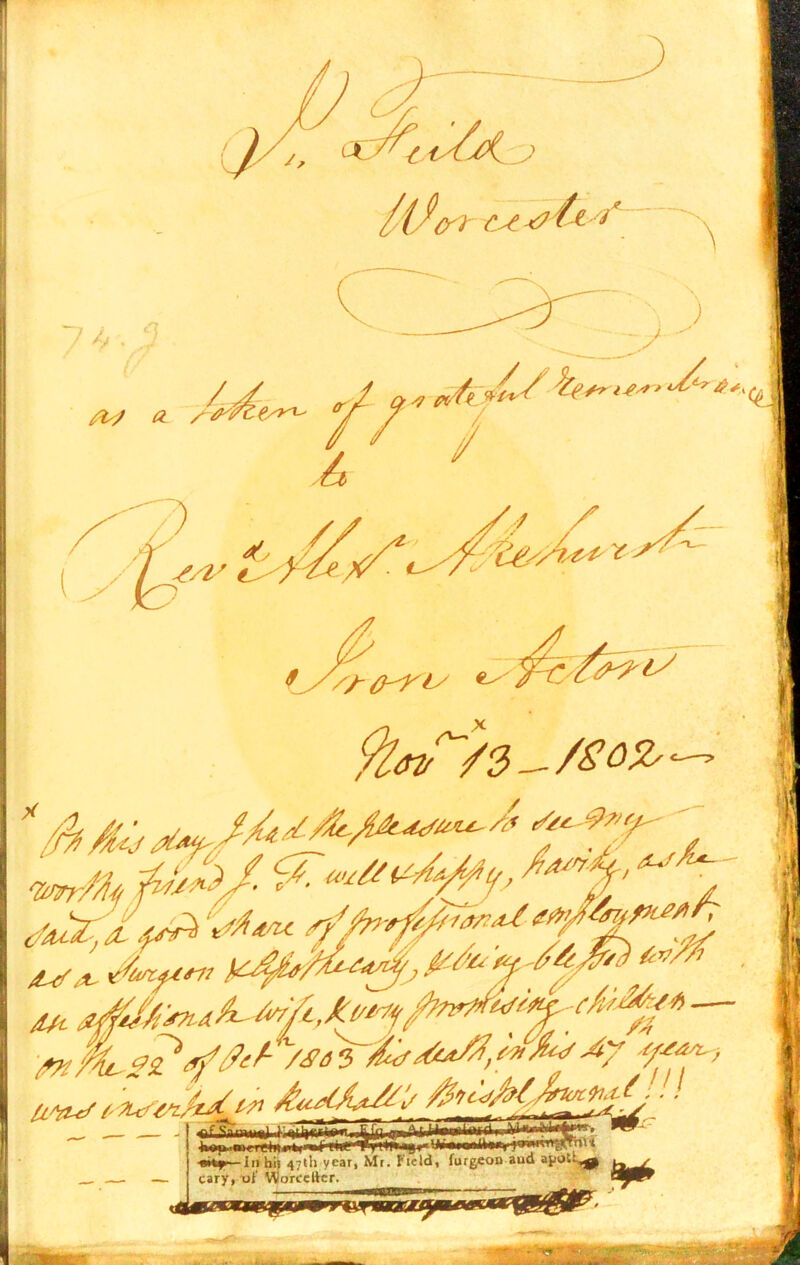 J. Feild
Worcester
74.g
as a token of grateful remembrance
to
Revd Alexr. Akehurst
Iron Acton
Novr x 13 - 1802
x On this day I had the pleasure to see my
worthy friend J. F. well & happy, having, as he
said, a good share of professional employment,
as a Surgeon & Apothecary, & being blessed with
an affectionate wife, & very promising children —
on the 22d of Octr 1803 his death, in his 47th year,
was inserted in Rudhall's Bristol Journal!!!
of Samuel Netherton, Esq. At Hereford, Mr.
hop-merchant, of the Tything, Worcester, joining this
city—In his 47th year, Mr. Field, surgeon and apoth
cary, of Worcester.